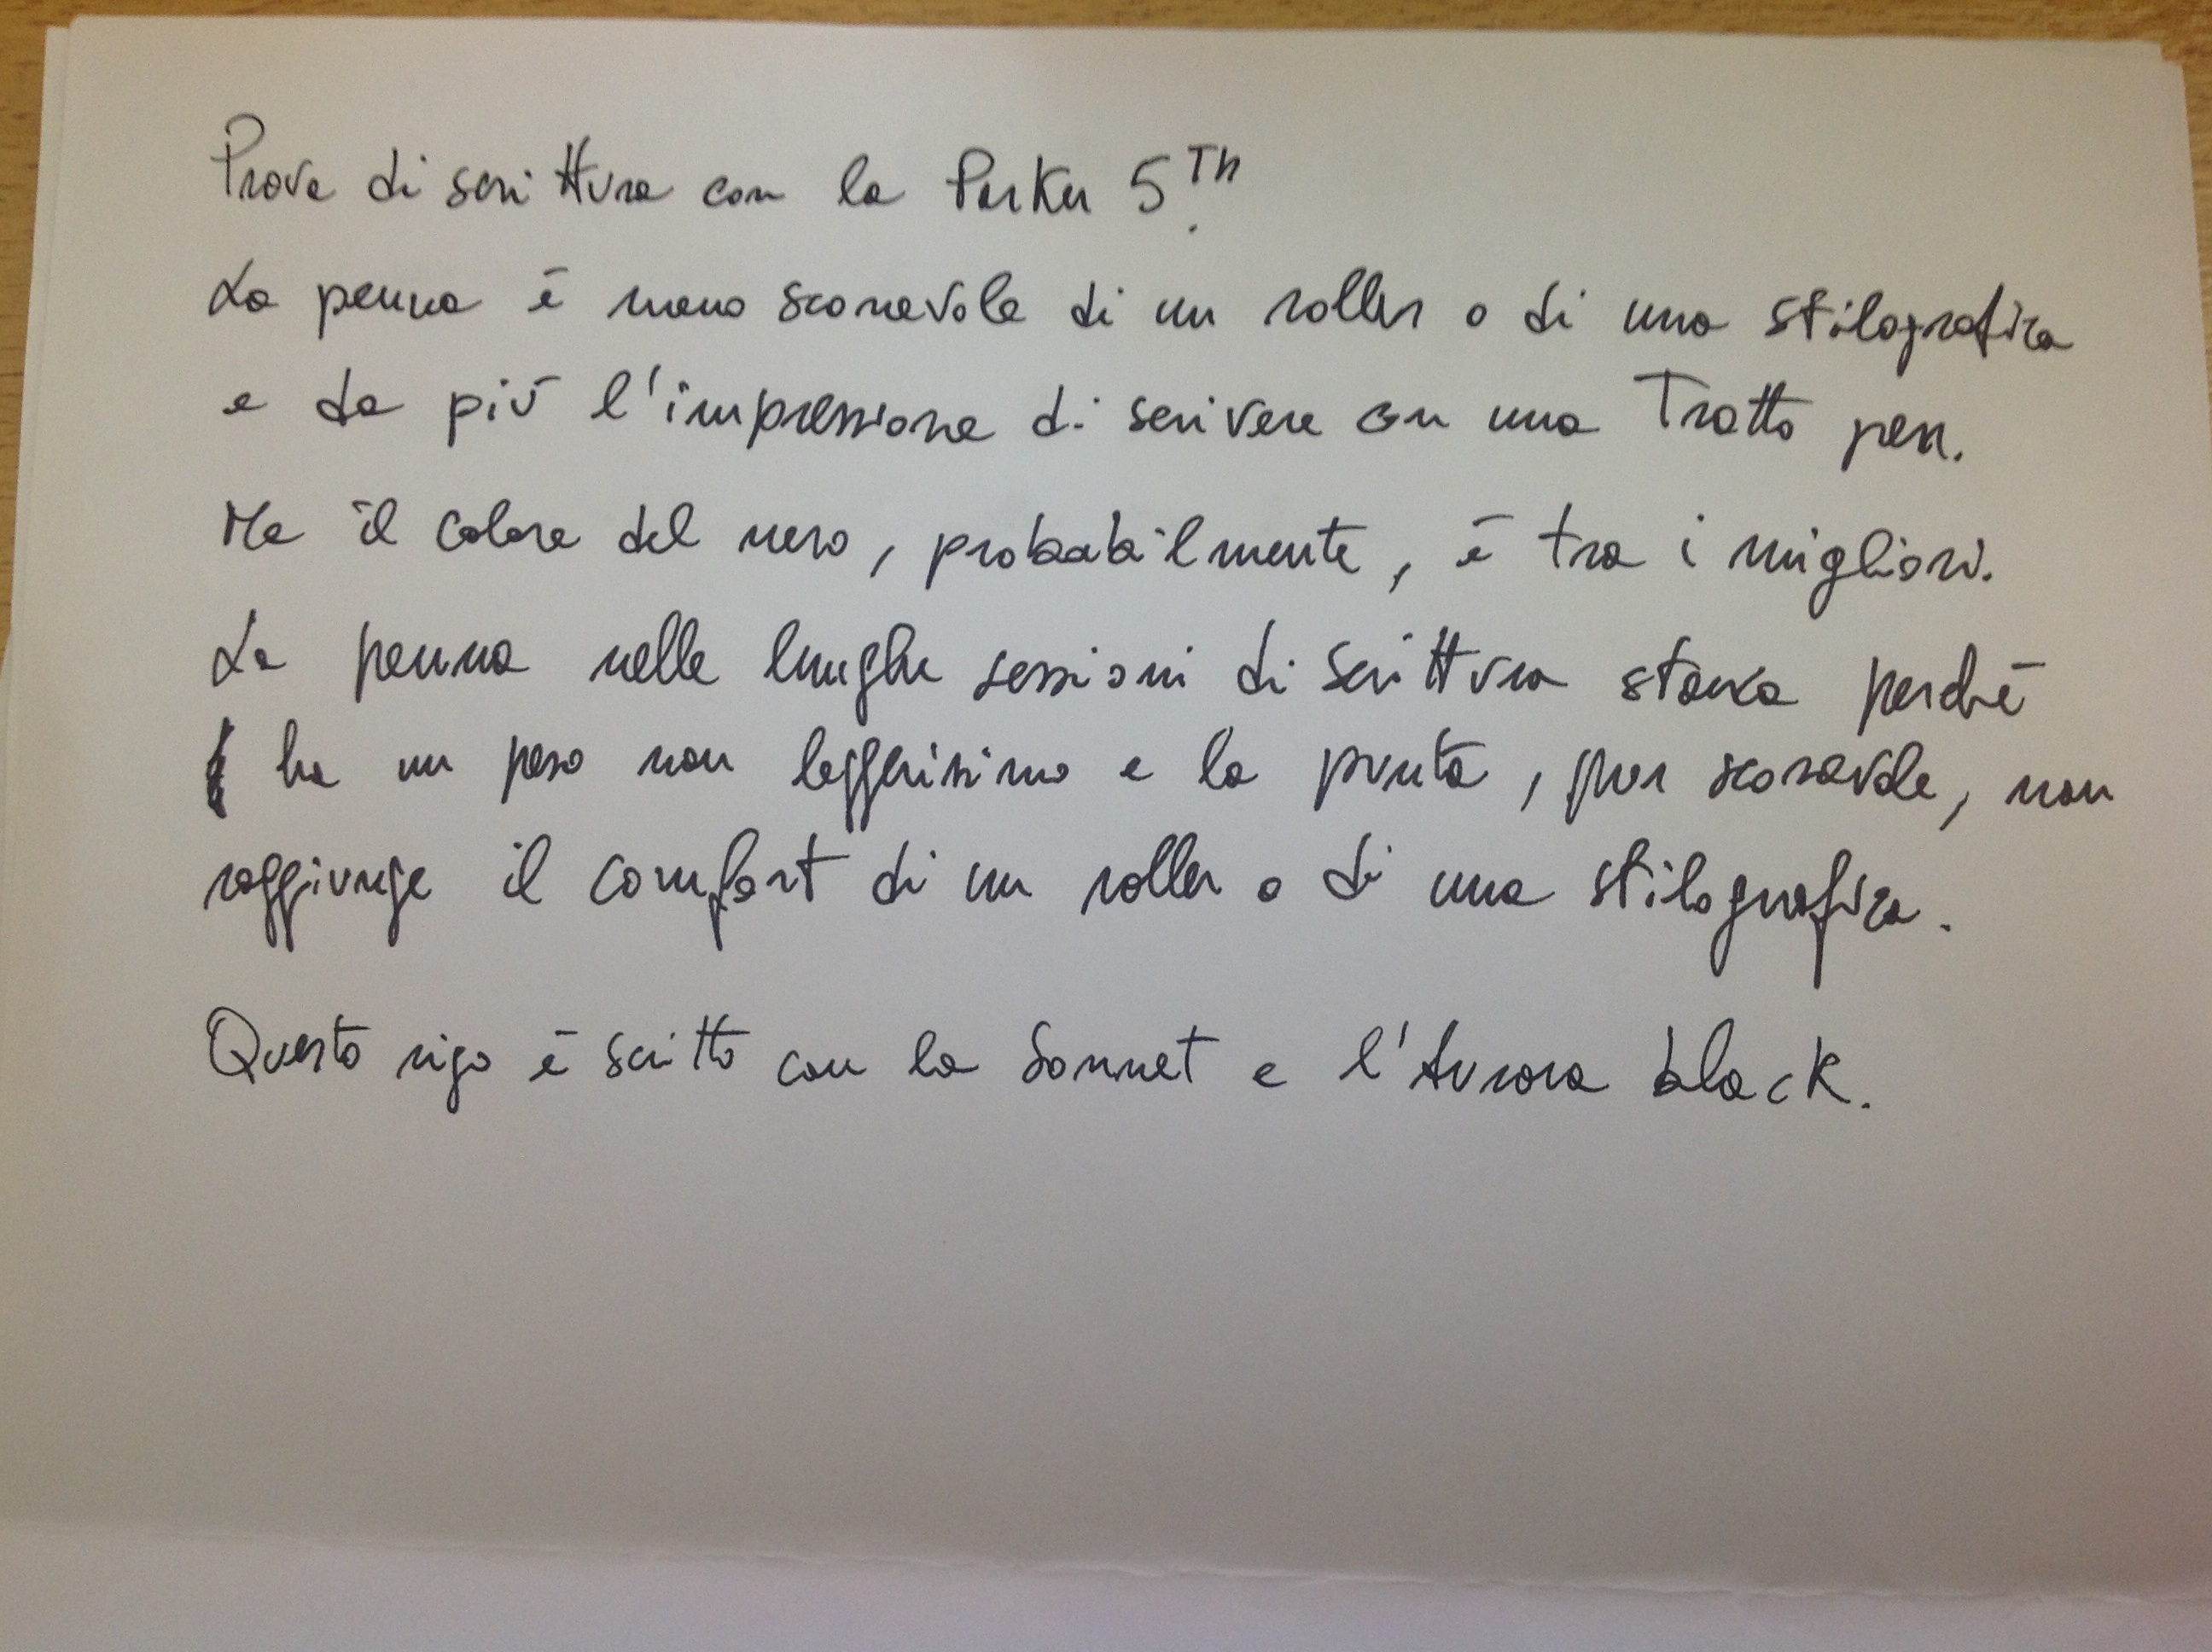 Prova di scrittura con la Parker 5TH.
La penna è meno scorrevole di un roller o di una stilografica
e da più l'impressione di scrivere con una Tratto pen.
Ma il colore del nero, probabilmente, è tra i migliori.
La penna nelle lunghe sessioni di scrittura stanca perché
ha un peso non leggerissimo e la punta, pur scorrevole, non
raggiunge il comfort di un roller o di una stilografica.
Questo rigo è scritto con la Sonnet e l'Aurora black.